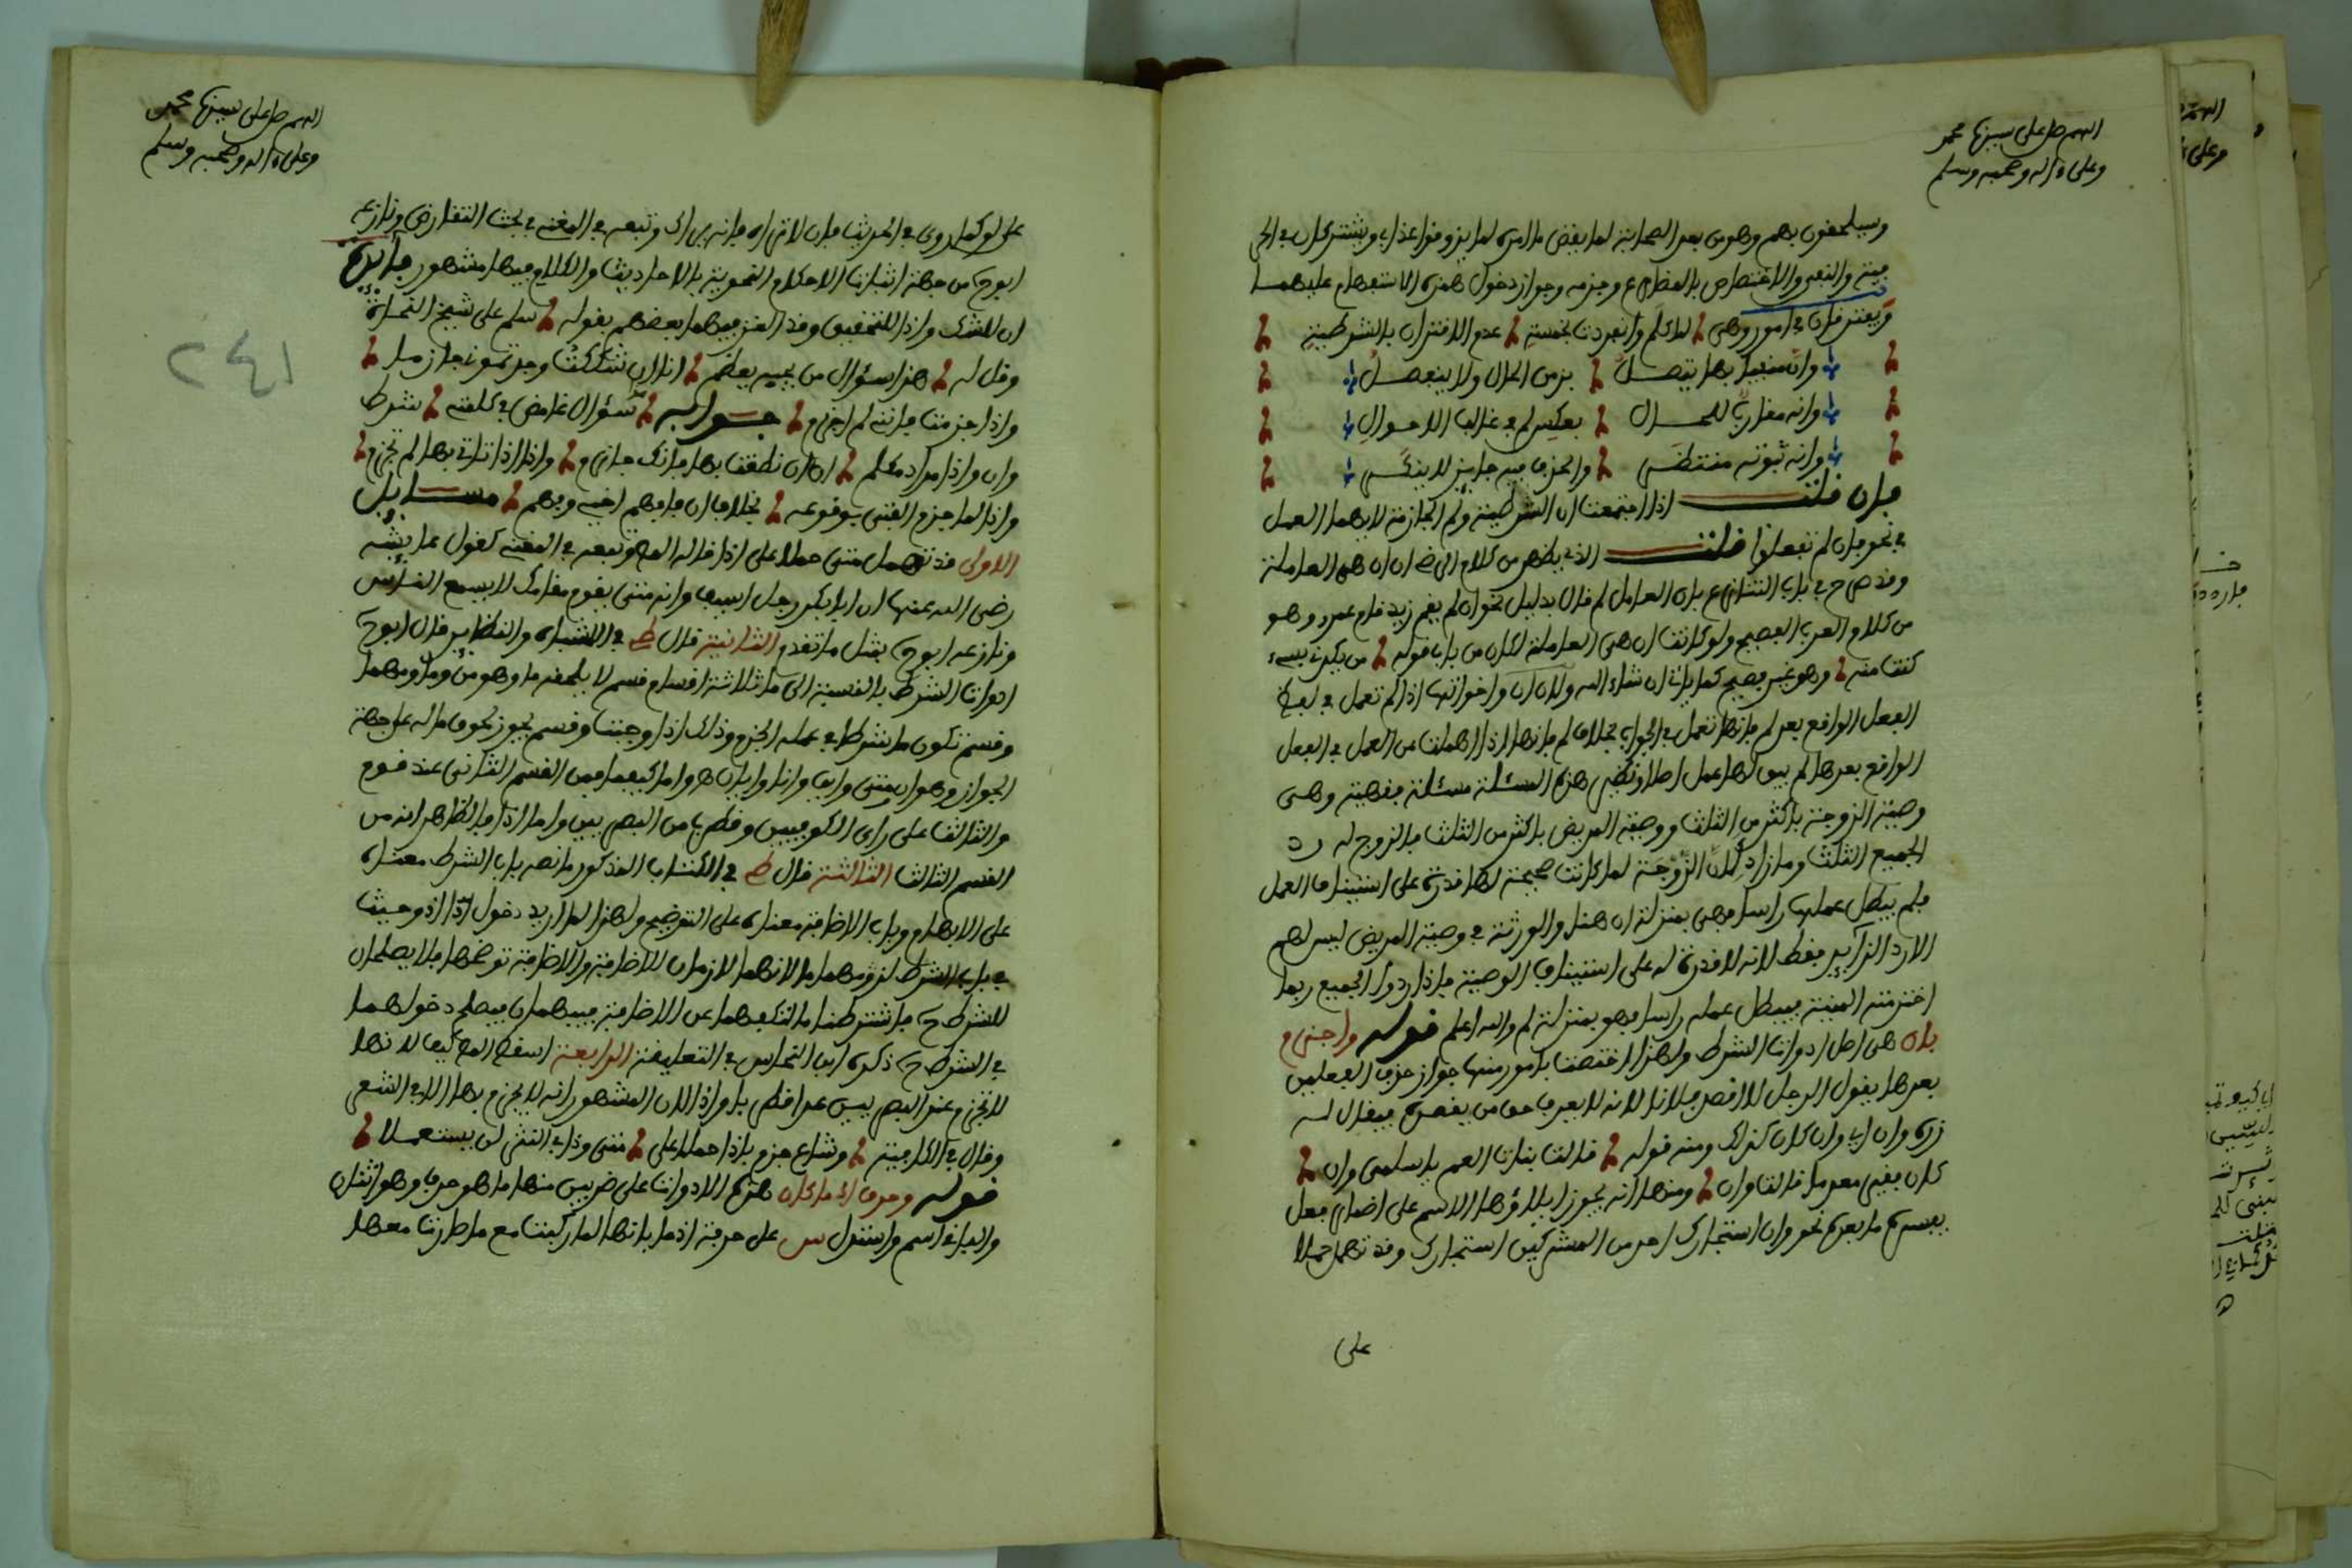 اللهم صل على سيدنا محمد
وعلى ءاله وصحبه وسلم
وسيلحقون بهم وهو من بعد الصحابة لما يقض ما امره لما يذوقوا عذاب ويشتركان في الحر
فية والنفي والاختصاص بالمضارع وجزمه وجواز دخول همزة الاستفهام عليهما
ويفترقان في امور وهي لما كلم وانفردت بخمسة عدم الاقتران بالشرطية
وان منفيا بها يتصل بزمن الحال ولا ينفصل
وانه مقارب للحال بعكس لم في غالب الاحوال
وانه ثبوته منتظر والحذف فيه جايز لا ينكر
فان قلت اذا اجتمعت ان الشرطية ولم الجازمة لايهما العمل
في نحو فان لم تفعلوا قلت الذي يظهر من كلام الرضي ان ان هي العاملة
وقد صرح في باب التنازع بان العامل لم قال بدليل نحو ان لم يقم زيد قام عمرو وهو
من كلام العرب الفصيح ولو كانت ان هي العاملة لكان من باب قوله من يكدني بسيء
كنت منه وهو غير فصيح كما ياتي ان شاء الله ولان ان واخواتها اذا لم تعمل في لفظ
الفعل الواقع بعد لم فانها تعمل في الجواب بخلاف لم فانها اذا اهملت عن العمل في الفعل
الواقع بعدها لم يبق لها عمل اصلا ونظير هذه المسئلة مسئلة فقهية وهي
وصية الزوجة باكثر من الثلث ووصية المريض باكثر من الثلث فالزوج له رد
الجميع الثلث وما زاد لان الزوجة لما كانت صحيحة لها قدرة على استيناف العمل
فلم يبطل عملها راسا فهي بمنزلة ان هنا والورثة في وصية المريض ليس لهم
الا رد الزايد فقط لانه لا قدرة له على استيناف الوصية فاذا ردوا الجميع ربما
اخترمته المنية فيبطل عمله راسا فهو بمنزلة لم والله اعلم قوله واجزم
بان هي اصل ادوات الشرط ولهذا اختصت بامور منها جواز حذف الفعلين
بعدها يقول الرجل لا اقصد فلانا لانه لا يعرف حق من يقصده فيقال له
زره وان اي وان كان كذلك ومنه قوله قالت بنات العم يا سلمى وان
كان فقيرا معدما قالت وان ومنها انه يجوز ايلاؤها الاسم على اضمار فعل
يفسره ما بعده نحو وان استجارك احد من المشركين استجارك وقد تهمل حملا
على
اللهم صل على سيدنا محمد
وعلى ءاله وصحبه وسلم
على لو كما روي في الحديث فان لا تراه فانه يراك وتبعه في المغني في بحث التقارض ونازعه
ابوح من جهة اثبات الاحكام النحوية بالاحاديث والكلام فيها مشهور فايدة
ان للشك واذا للتحقيق وقد الغز فيهما بعضهم بقوله سلم على شيخ النحاة
وقل له هذا سؤال من يجبه يعظم انا ان شككت وجدتموني جازما
واذا جزمت فانني لم اجزم جوابه سؤال غامض في كلمتي شرط
وان واذا مراد مكلم ان ان نطقت بها فانك جازم واذا اذا تاتي بها لم تجزم
واذا لما جزم الفتى بوقوعه بخلاف ان فافهم اخي وفهم مسايل
الاولى قد تهمل متى حملا على اذا قاله المص وتبعه في المغني كقول عايشة
رضي الله عنها ان ابا بكر رجل اسيف وانه متى يقوم مقامك لا يسمع الناس
ونازعه ابوح بمثل ما تقدم الثانية قال ط في الاشباه والنظاير قال ابوح
ادوات الشرط بالنسبة الى ما ثلاثة اقسام قسم لا يلحقه ما وهو من وما ومهما
وقسم تكون ما شرطا في عمله الجزم وذلك اذ وحيث وقسم يجوز لحوق ما له على جهة
الجواز وهو ان ومتى واي وانا وايان هو واما كيفما فمن القسم الثاني عند قوم
والثالث على راي الكوفيين وقطرب من البصريين واما اذا فالظاهر انه من
القسم الثالث الثالثة قال ط في الكتاب المذكور ما نصه باب الشرط مبناه
على الابهام وباب الاضافة مبناه على التوضيح ولهذا لما اريد دخول اذ وحيث
في باب الشرط لزومهما ما لانهما لازمان للاضافة والاضافة توضحها فلا يصلحان
للشرط ح فاشترطنا ما لتكفهما عن الاضافة فيبهمان فيصلح دخولهما
في الشرط ح ذكره ابن النحاس في التعليقة الرابعة اسقط المص كيف لانها
لا تجزم عند البصريين عدا قطربا واذا لان المشهور انه لا يجزم بها الا في الشعر
وقال في الكافية وشاع جزم باذا حملا على متى وذا في النثر لن يستعملا
قوله وحرف اذ ما كان هذه الادوات على ضربين منها ما هو حرف وهو اثنان
والباقي اسم واستدل س على حرفية اذ ما بانها لما ركبت مع ما طرت معها
٢٤١